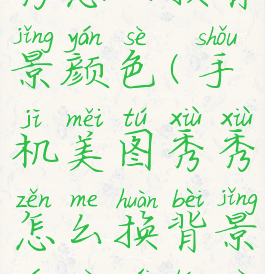 jǐng yán sè shǒu
景颜色(手
jī měi tú xiù xiù
机美图秀秀
zěn me huàn bèi jǐng
怎么换背景